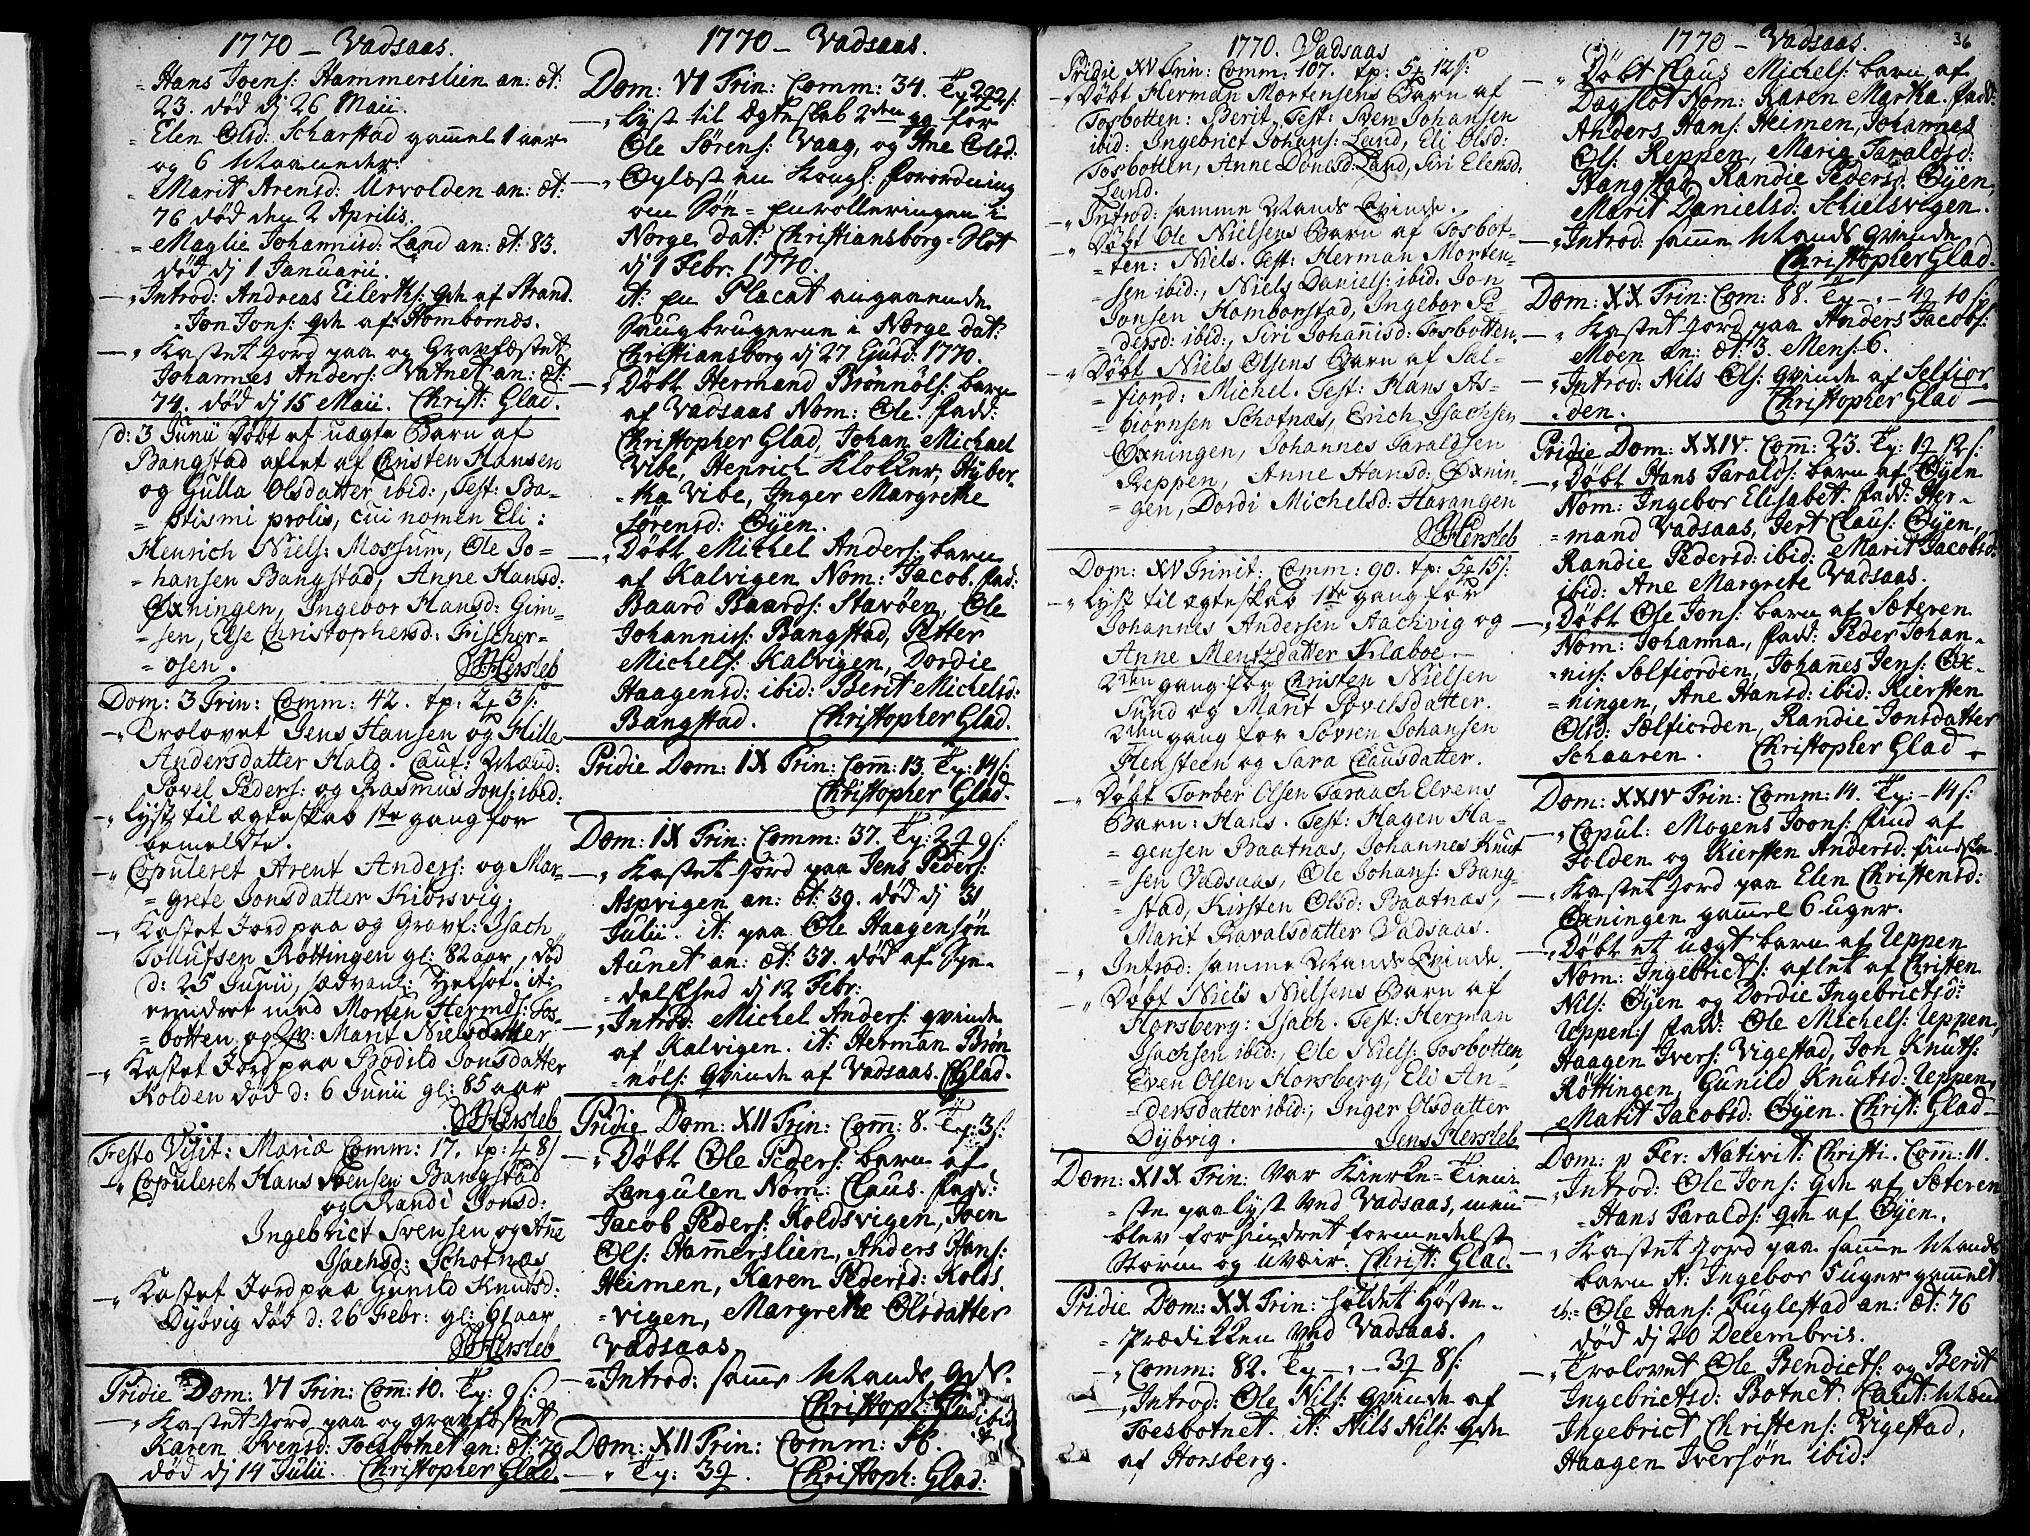 1770 – Vadsaas.
" Hans Joens: Hammerslien an: æt:
23. død dj 26 Maii.
" Elen Olsd: Scharstad gamel 1 aar
og 6 Maaneder.
" Marit Arensd: Urvolden an: æt:
76 død den 2 Aprilis.
" Maglie Johannisd: Land an: æt: 83.
død dj 1 Januarii.
–" Introd: Andreas Eilerths: qde af Strand.
" Jon Jons: qde af Hombornæs.
–" Kastet Jord paa og Gravfæstet
Johannes Anders: Vatnet an: æt:
74. død dj 15 Maii. Christ: Glad.
d: 3 Junii Døbt et uægte Barn af
Bangstad aflet af Christen Hansen
og Gulla Olsdatter ibid:, Test: Ba=
= ptismi prolis, cui nomen Eli:
Henrich Niels: Mossum, Ole Jo=
= hansen Bangstad, Anne Hansd:
Øxningen, Ingebor Hansd: Gim=
= sen, Else Christophersd: Fischer=
= osen. JHersleb
Dom: 3 Trin: Comm: 42. tp: 2 3 s:
–" Trolovet Jens Hansen og Hille
Andersdatter Hald. Cauf: Mænd:
Povel Peders: og Rasmus Jons: ibid:
–" Lyst til ægteskab 1te gang for
bemeldte.
–" Copuleret Arent Anders: og Mar=
= grete Jonsdatter Kibsvig.
–" Kastet Jord paa og Gravf: Isach
Tollufsen Røttingen gl: 82 aar, død
d: 25 Junii, sædvanl: Helsot. it:
erindret med Morten Hermds: Tos=
= botten og Marit Nielsdatter
–" Kastet Jord paa Bodild Jonsdatter
Kolden død d: 6 Junii gl: 85 aar
JHersleb
Festo Visit: Mariæ Comm: 17. tp: 4 8 s
–" Copuleret Hans Joensen Bangstad
og Randi Jonsd:
Ingebrict Svensen og Ane
Isachsd: Schotnæs
–" Kastet Jord paa Gunild Knudsd:
Dybvig død d: 26 Febr: gl: 61 aar
JHersleb
Pridie Dom: VI Trin: Com: 10. Ty: 9 s:
–" Kastet Jord paa og gravfæstet
Karen Svensd: Toesbotnet an: æt: 79
død dj 14 Julii. Christopher Glad.
1770 – Vadsaas.
Dom: VI Trin: Comm: 34. Ty: 2 22 s:
–" Lyst til Ægteskab 2den gg for
Ole Sørens: Vaag, og Ane Olsd:
–" Oplæst en Kongl: forordning
om Søn= Enrolleringen i
Norge dat: Christiansborg=Slot
dj 1 Febr. 1770.
it: en Placat angaaende
Saugbrugerne i Norge dat:
Christiansborg dj 27 Ejusd: 1770.
–" Døbt Hermand Brønnøls: barn
af Vadsaas Nom: Ole. fadd:
Christopher Glad, Johan Michael
Vibe, Henrich Klokker, Hyber.
= tha Vibe, Inger Margrethe
Sørensd: Øyen.
–" Døbt Michel Anders: barn
af Kalvigen Nom: Jacob. fad:
Baard Baards: Stavøen, Ole
Johannis: Bangstad, Petter
Michels: Kalvigen, Dordie
Haagensd: ibid: Berit Michelsd:
Bangstad. Christopher Glad.
Pridie Dom: IX Trin: Com: 13. Ty: 14 s:
Christopher Glad.
Dom: IX Trin: Comm: 37. Ty: 2 9 s:
–" Kastet Jord paa Jens Peders:
Aspvigen an: æt: 39. død dj 31
Julii. it: paa Ole Haagensøn
Aunet an: æt: 37. død af Spe=
= dalskhed dj 12 Febr:
–" Introd: Michel Anders: qvinde
af Kalvigen. it: Herman Brøn
= nøls: Qvinde af Vadsaas. CGlad.
Pridie Dom: XII Trin: Com: 8. Ty: 3 s:
–" Døbt Ole Peders: barn af
Langulen Nom: Claus. fadd:
Jacob Peders: Koldsvigen, Joen
Ols: Hammerslien, Anders Hans:
Heimen, Karen Pedersd: Kolds.
= vigen, Margrethe Olsdatter
Vadsaas.
–" Introd: samme Mands qde.
Christoph: Glad
Dom: XII Trin: Comm:
–" Ty: 3 . Christoph: Glad:
1770. Vadsaas
Pridie XV Trin: Comm: 107. tp: 5 12 s:
–" Døbt Herman Mortensens Barn af
Tosbotten: Berit, Test: Sven Johansen
ibid: Ingebrict Johans: Land, Eli Olsd:
Tosbotten, Anne Donesd: Land, Siri Elensd:
Lund.
–" Introd: samme Mands Qvinde.
–" Døbt Ole Nielsens Barn af Tosbot=
= ten: Niels. Test: Herman Morten=
= sen ibid:, Niels Daniels: ibid. Jon
Jonsen Homborstad, Ingebor Pe=
= dersd: ibid:, Siri Johanisd: Tosbotten.
–" Døbt Niels Olsens Barn af Sal=
= fiord: Michel. Test: Hans As=
= biørnsen Schotnæs, Erich Isachsen
Øxningen, Johannes Taraldsen
Reppen, Anne Hansd: Øxnin=
= gen, Dordi Michelsd: Harangen
JHersleb
Dom: XV Trinit: Comm: 90. tp: 5 15 s:
–" Lyst til ægteskab 1te gang for
Johannes Andersen Aachvig og
Anne Mentzdatter Klaboe –
2den gang for Christen Nielsen
Sund og Marit Povelsdatter.
2den gang for Sovren Johansen
Hensteen og Sara Clausdatter.
–" Døbt Torber Olsen Taraach Elvens
Barn: Hans. Test: Hagen Ha=
= gensen Baatnæs, Johannes Knut
= sen Vadsaas, Ole Johans: Bang=
= stad, Kirsten Olsd: Baatnæs,
Marit Ravalsdatter Vadsaas.
–" Introd: samme Mands Qvinde.
–" Døbt Niels Nielsens Barn af
Horsberg: Isach. Test: Herman
Isachsen ibid:, Ole Niels: Tosbotten,
Even Olsen Horsberg, Eli An=
= dersdatter ibid:, Inger Olsdatter
Dybvig. Jens Hersleb
Dom: XIX Trin: Var Kierke=Tieni
= ste paalyst ved Vadsaas, men
blev forhindret formedelst
Storm og uvæir. Christ: Glad.
Pridie Dom: XX Trin: holdet Høste=
= prædikken ved Vadsaas.
–" Comm: 82. Ty –"– 3 8 s:
–" Introd: Ole Nils: Qvinde af
Toesbotnet. it: Nils Nils: Qde
af Horsberg.
1770 – Vadsaas. 36
–" Døbt Claus Michels: barn af
Dagslot Nom: Karen Martha. fadd:
Anders Hans: Heimen, Johannes
Ols: Reppen, Maria Taraldsd:
Hangstad, Randie Pedersd: Øyen,
Marit Danielsd: Schielsvigen.
–" Introd: samme Mands qvinde
Christopher Glad.
Dom: XX Trin: Com: 88. Ty –"– 4 10 s:
–" Kastet Jord paa Anders Jacobs:
Moen an: æt: 3. Mens: 6.
–" Introd: Nils Ols: qvinde af Selfior
= den. Christopher Glad –
Pridie Dom: XXIV. Com: 23. Ty: 1 12 s:
–" Døbt Hans Taralds: barn af Øyen
Nom: Ingebor Elisabet. fadd: Her=
= mand Vadsaas, Jert Claus: Øyen,
Randie Pedersd: ibid: Marit Jacobsd:
ibid: Ane Margrete Vadsaas.
–" Døbt Ole Jons: barn af Sæteren
Nom: Johanna, fadd: Peder Johan=
= nis: Sælfiorden, Johannes Jens: Øx=
= ningen, Ane Hansd: ibid: Kiersten
Olsd: Sælfiorden, Randie Jonsdatter
Schaaren. Christopher Glad –
Dom: XXIV Trin: Comm: 14. Ty: – 14 s:
–" Copul: Mogens Joons: find af
Folden og Kiersten Andersd: findske.
–" Kastet Jord paa Elen Christensd:
Øxningen gammel 6 uger.
–" Døbt et uægt barn af Ueppen
Nom: Ingebricts: aflet af Christen
Nils: Øyen og Dordie Ingebrictsd:
Ueppen; fadd: Ole Michels: Ueppen,
Haagen Ivers: Vigestad, Jon Knuts:
Røttingen, Gunild Knutsd: Ueppen,
Marit Jacobsd: Øyen. Christ: Glad –
Dom: p Fer: Nativit: Christi. Com: 11.
–" Introd: Ole Jons: qde af Sæteren
" Hans Taralds: qde af Øyen.
–" Kastet Jord paa samme Mands
barn N: Ingebor 5 uger gamelt
it: Ole Hans: Fuglestad an: æt: 76
død dj 20 Decembris.
–" Trolovet Ole Bendicts: og Berit
Ingebrictsd: Botnet. Caut: Mænd
Ingebrict Christens: Vigestad,
Haagen Iversøn ibid: